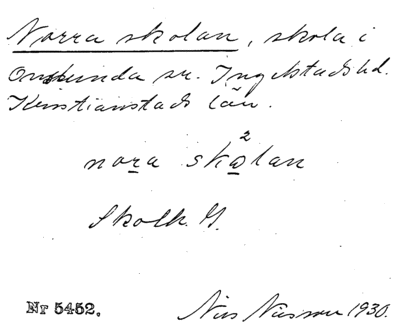 Norra skolan, skola i
Onslunda sn. Ingelstads hd.
Kristianstads län.
2
nora skolan
Skolk. G.
Nr 5452.
Nils Nilsson 1930.